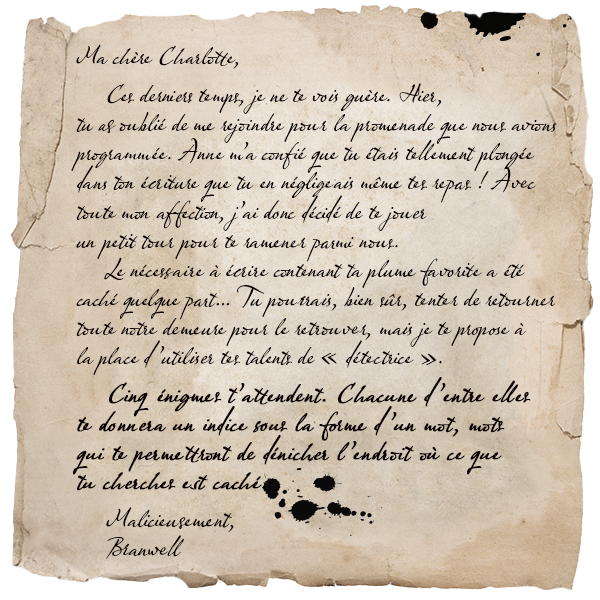 Ma chère Charlotte,
Ces derniers temps, je ne te vois guère. Hier,
tu as oublié de me rejoindre pour la promenade que nous avions
programmée. Anne m'a confié que tu étais tellement plongée
dans ton écriture que tu en négligeais même tes repas ! Avec
toute mon affection, j'ai donc décidé de te jouer
un petit tour pour te ramener parmi nous.
Le nécessaire à écrire contenant ta plume favorite a été
caché quelque part... Tu pourrais, bien sûr, tenter de retourner
toute notre demeure pour le retrouver, mais je te propose à
la place d'utiliser tes talents de « détectrice ».
Cinq énigmes t'attendent. Chacune d'entre elles
te donnera un indice sous la forme d'un mot, mots
qui te permettront de dénicher l'endroit où ce que
tu cherches est caché
Malicieusement,
Branwell